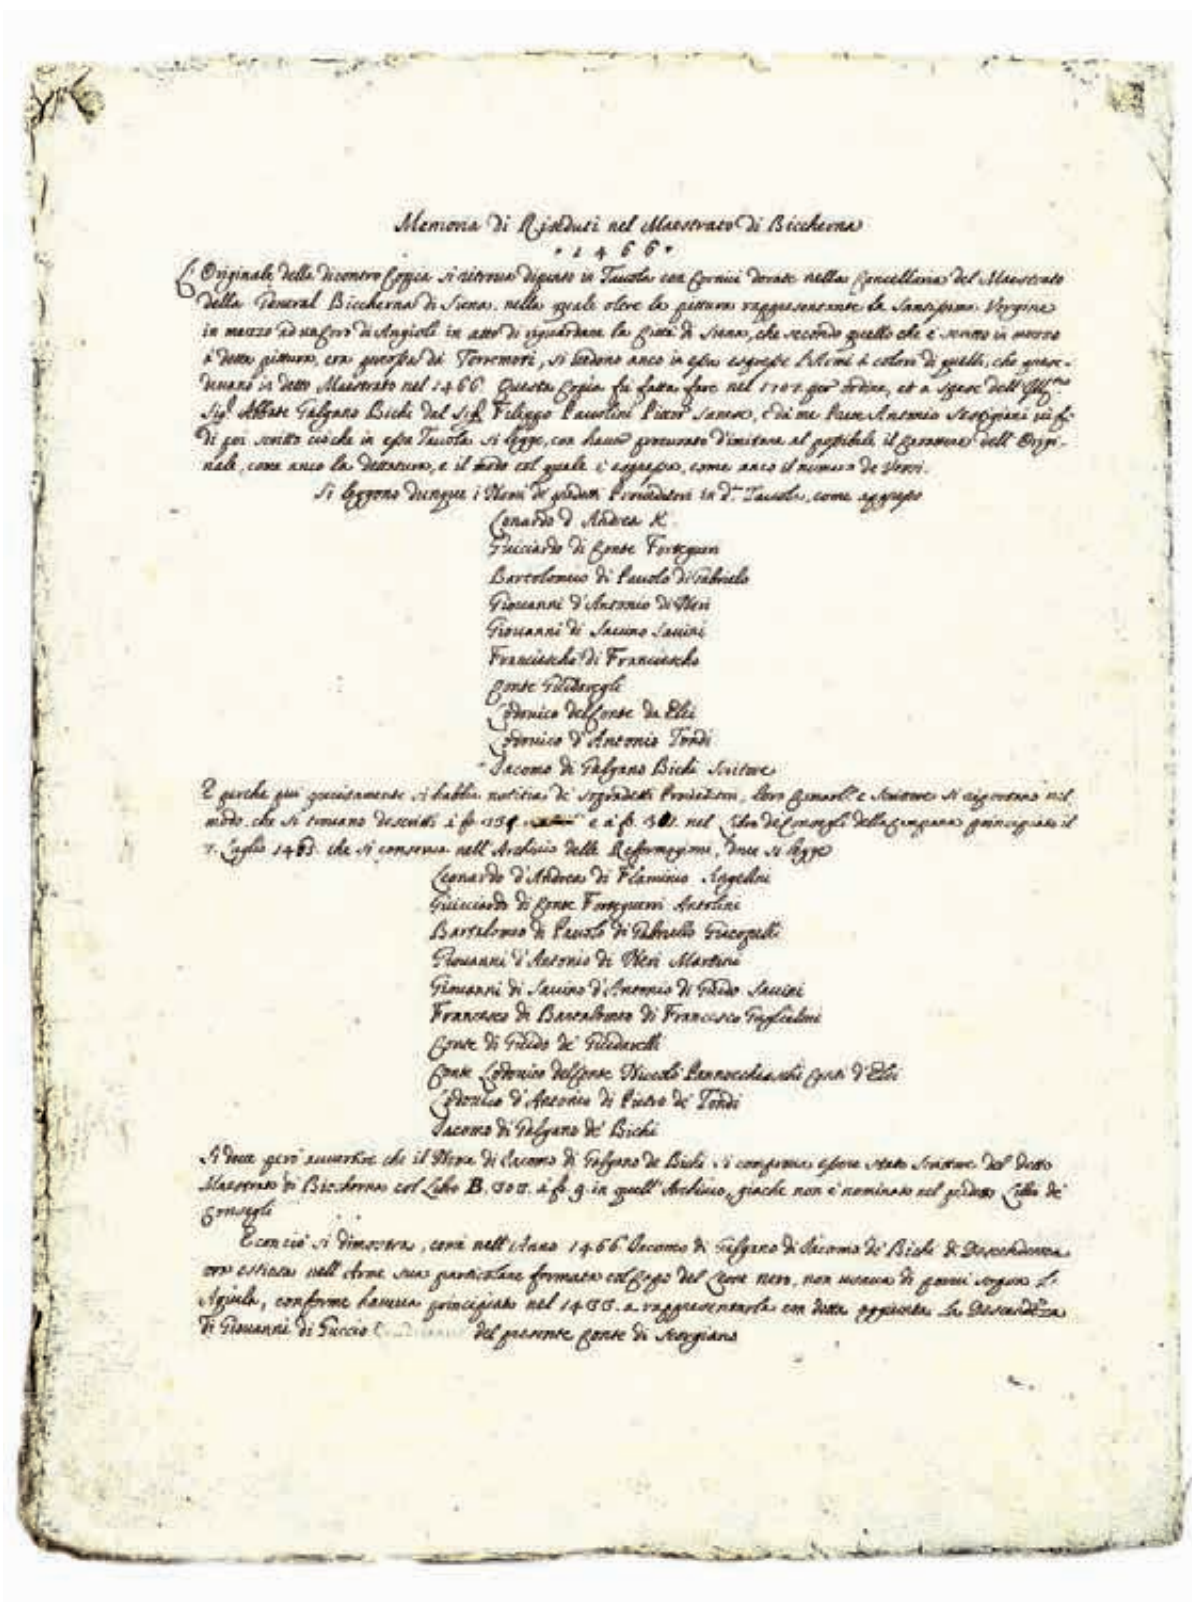 Memoria di Riseduti nel Maestrato di Biccherna
• 1466 •
L'Originale della dicontro Copia si ritrova dipinto in Tavola con Cornici dorate nella Cancellaria del Maestrato
della General Biccherna di Siena, nella quale oltre la pittura rappresentante la Santissima Vergine
in mezzo ad un Coro di Angioli in atto di riguardare la Città di Siena, che secondo quello che è scritto in mezzo
à detta pittura, era da Terremoti, si vedono anco in essa espresse l'Armi à colori di quelli, che
in detto Maestrato nel 1466. Questa Copia fù fatta fare nel 1707. per ordine, et a spese dell' Ill.mo
Sig.r Abbate Galgano Bichi dal Sig.r Filippo Pavolini Pittor Sanese, e da me Prete Antonio
di poi scritto ciò che in essa Tavola si legge, con haver procurato d'imitare al possibile il carattere dell' Origi-
nale, come anco la dettatura, e il modo col quale è espresso, come anco il numero de Versi.
Si leggono dunque i Nomi de' predetti Proveditori in d.ta Tavola, come appresso
Lonardo d'Andrea K.
Guicciardo di Conte Forteguerri
Bartolomeo di Pavolo di Gabrielo
Giovanni d'Antonio di Neri
Giovanni di Savino Savini
Franciescho di Franciescho
Conte Guidaregli
Lodovico del Conte da Elci
Lodovico d'Antonio Tondi
Iacomo di Galgano Bichi Scritore
E perche più precisamente si habbia notitia de' sopradetti Proveditori, loro Camarl.o e Scrittore si riportano nel
modo che si trovano descritti à fo. e à fo. nel Libro de Consegli della Campana principiato il
Luglio che si conserva nell' Archivio delle Reformagioni, dove si legge
Leonardo d'Andrea di Flaminio Angelini
Guicciardo di Conte Forteguerri Antolini
Bartolomeo di Pavolo di Gabriello Giacopelli
Giovanni d'Antonio di Neri Martini
Giovanni di Savino d'Antonio di Guido Savini
Francesco di Bartalomeo di Francesco Guglielmi
Conte di Guido de' Guidarelli
Conte Lodovico del Conte Niccolò Pannocchieschi Conti d'Elci
Lodovico d'Antonio di Pietro de' Tondi
Iacomo di Galgano de' Bichi
Si deve però avvertire che il Nome di Iacomo di Galgano de Bichi si comprova essere stato Scrittore del detto
Maestrato di Biccherna col Libro B. à fo. 9. in quell' Archivio, giache non è nominato nel predetto Libro de'
Consegli
E con ciò si dimostra, come nell' Anno 1466 Iacomo di Galgano di Iacomo de' Bichi di Descendenza
ora estinta nell' Arme sua particolare formata col Capo del Leone nero, non usava di porvi sopra L'
Aquila, conforme haveva principiato nel a rappresentarla con detta aggiunta La Descendeza
di Giovanni di Guccio del presente Conte di Scorgiano